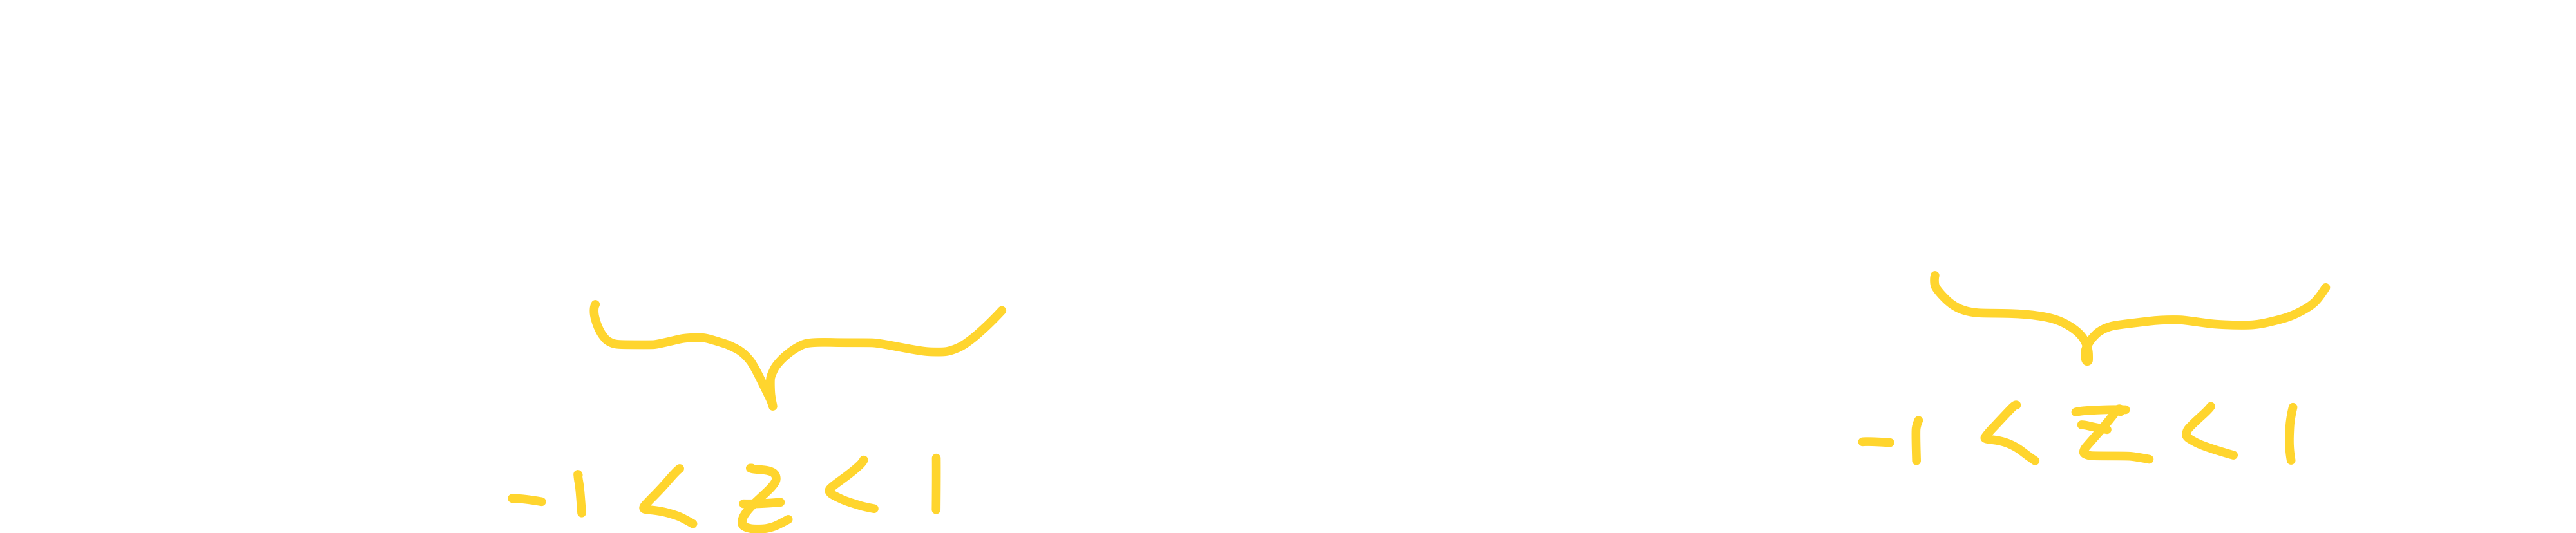 -1 < z < 1
-1 < z < 1